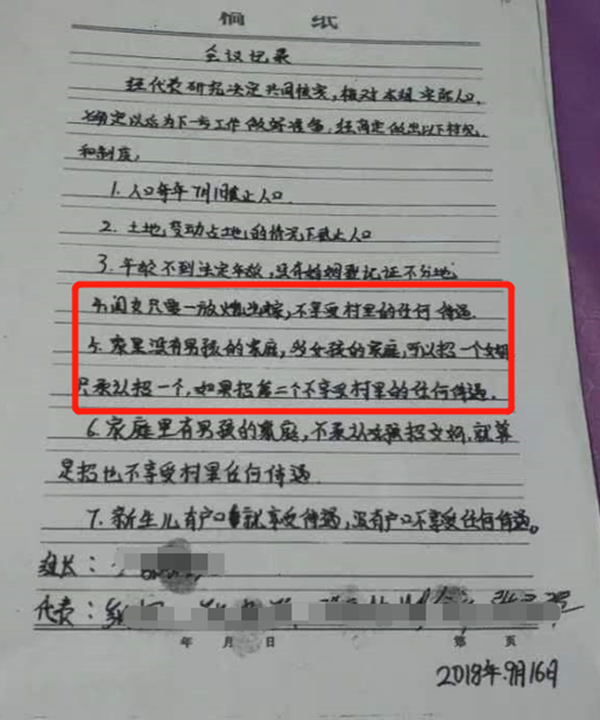 稿 纸
会议记录
经代表研究决定共同核实,核对本组实际人口,
确定以后为下一步工作做好准备,经商定做出以下村规
和制度,
1. 人口每年7月1日截止人口
2. 土地变动占地的情况下截止人口
3. 年龄不到法定年龄,没有婚姻登记证不分地
4. 闺女只要一放炮出嫁,不享受村里的任何待遇.
5. 家里没有男孩的家庭,多女孩的家庭,可以招一个女婿
只承认招一个,如果招第二个不享受村里的任何待遇.
6. 家庭里有男孩的家庭,不承认 招女婿,就算
是招也不享受村里任何待遇
7. 新生儿有户口就享受待遇,没有户口不享受任何待遇。
组长:
代表:
年 月 日 第 页
2018年.9月16日